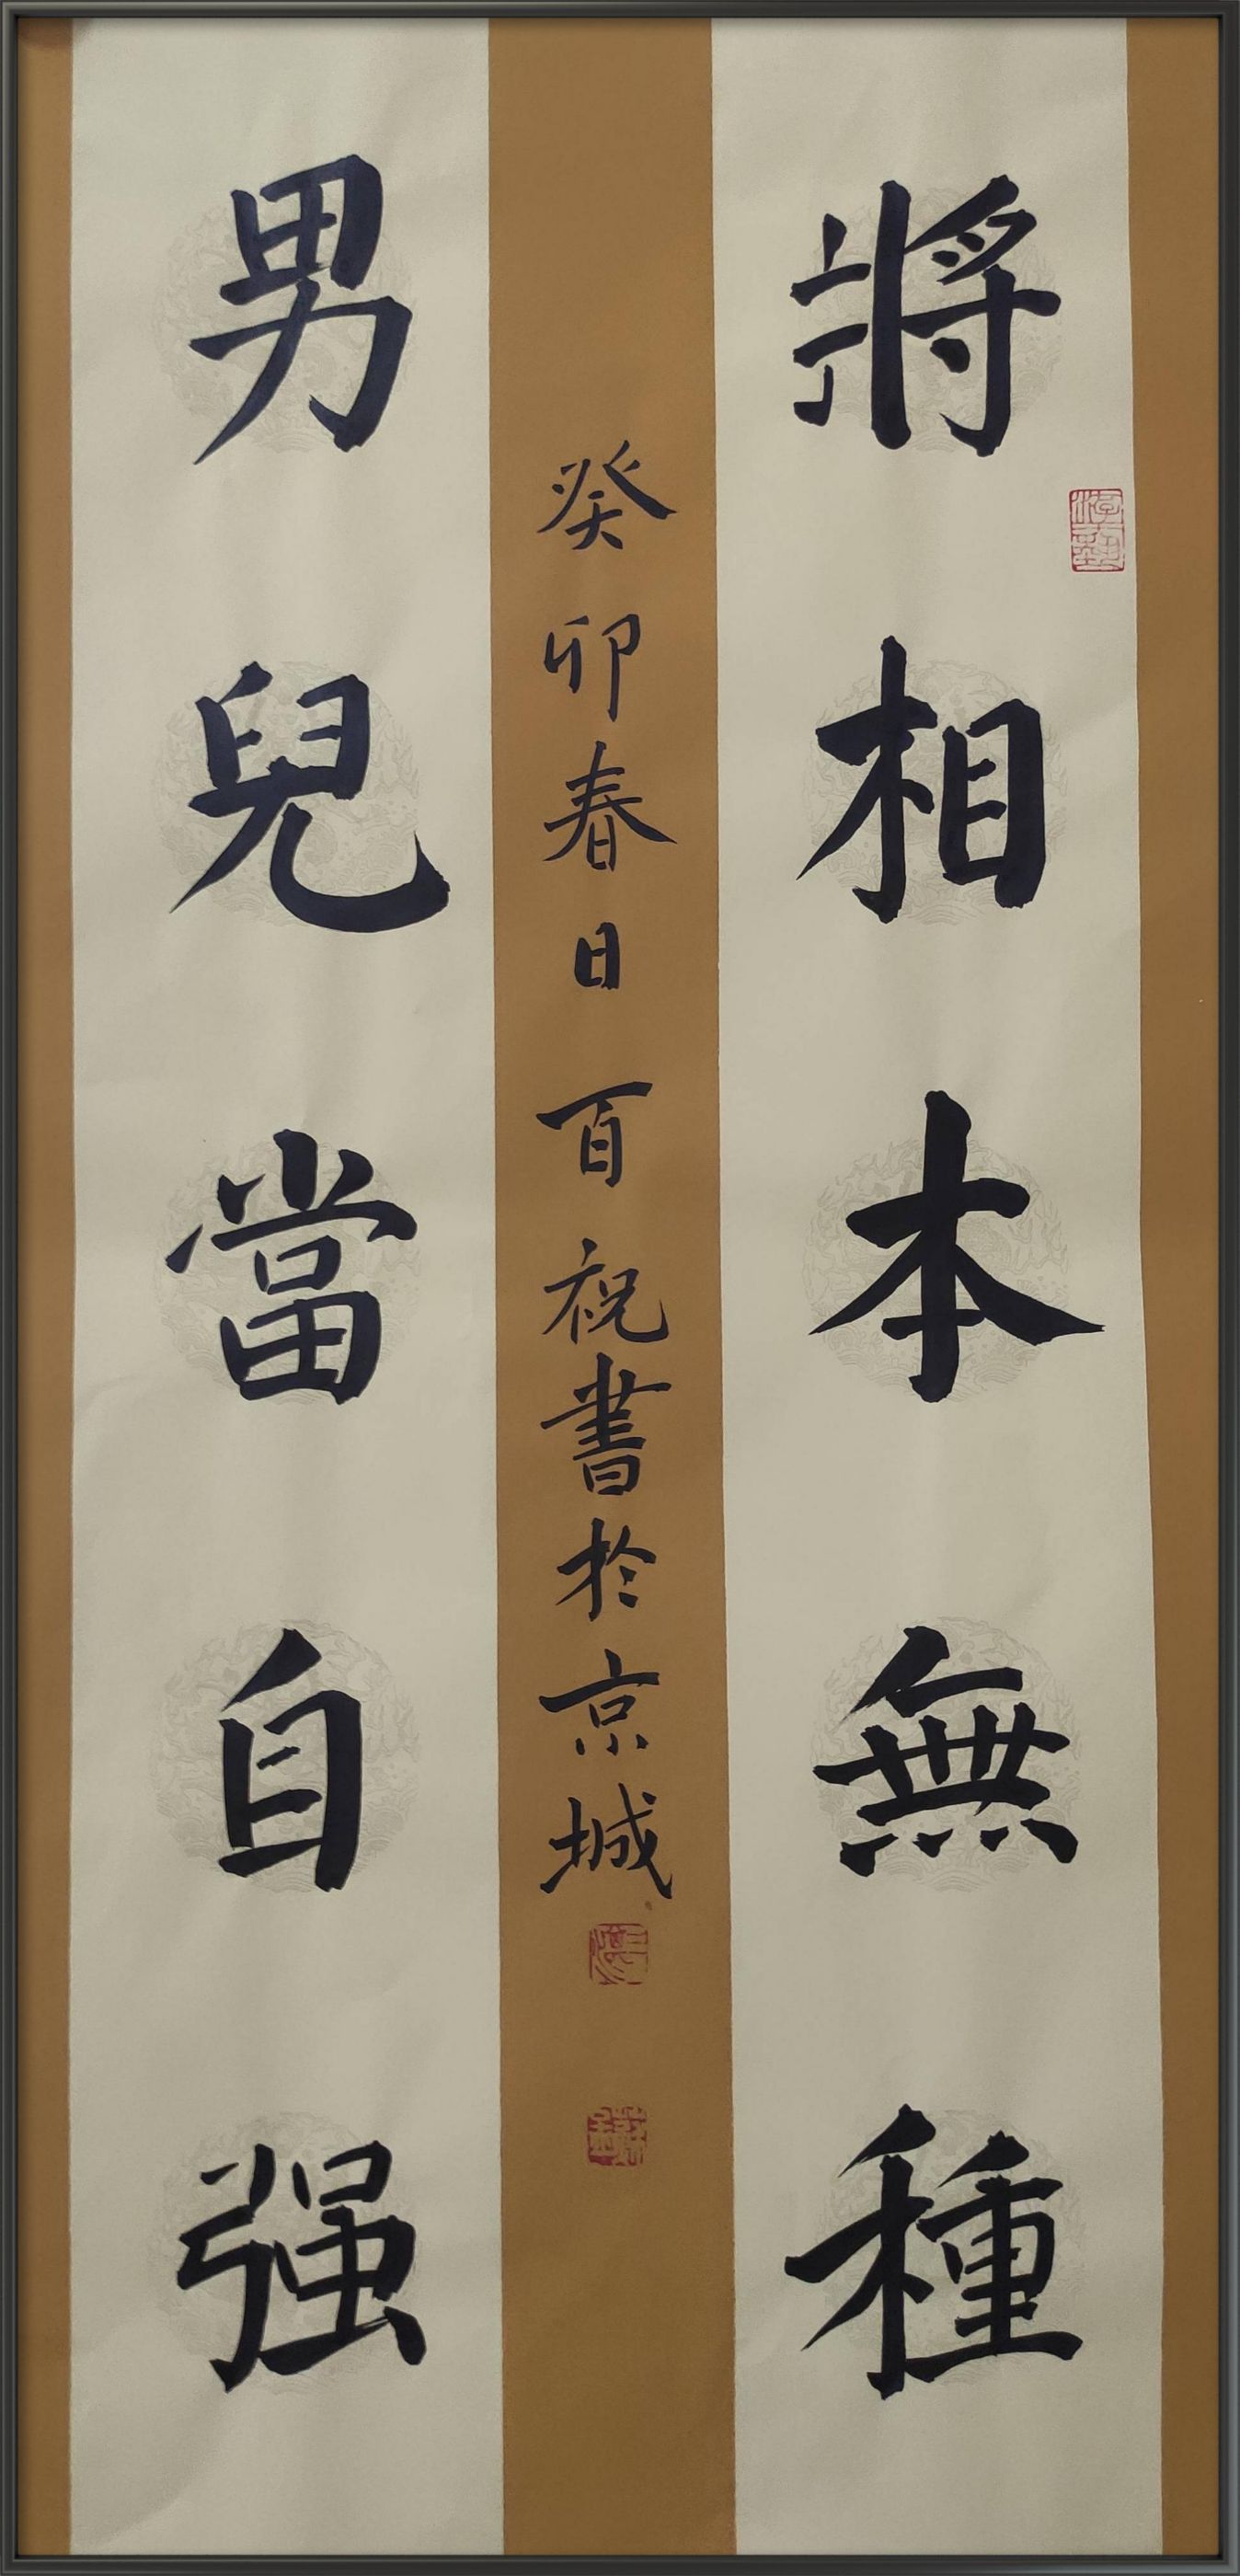 將相本無種
男兒當自强
癸卯春日百祝書於京城